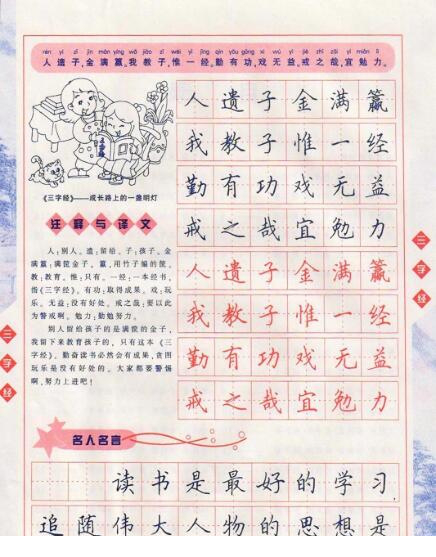 rén yí zǐ jīn mǎn yíng wǒ jiāo zǐ wéi yì jīng qín yǒu gōng xì wú yì jiè zhī zāi yí miǎn lì
人遗子，金满籝。我教子，惟一经。勤有功，戏无益。戒之哉，宜勉力。
《三字经》——成长路上的一盏明灯
注释与译文
人：别人。遗：留给。子：孩子。金
满籝：满筐金子。籝，用竹子编的筐。
教：教育。惟：只有。一经：一本经书，
指《三字经》。有功：取得成果。戏：玩
乐。无益：没有好处。戒之哉：要以此
为警戒啊。勉力：勤勉努力。
别人留给孩子的是满筐的金子，
我留下来教育孩子的，只有这本《三
字经》。勤奋读书必然会有成果，贪图
玩乐是没有好处的。大家都要警惕
啊，努力上进吧！
人遗子金满籝
我教子惟一经
勤有功戏无益
戒之哉宜勉力
人遗子金满籝
我教子惟一经
勤有功戏无益
戒之哉宜勉力
三字经
三字经
名人名言
读书是最好的学习
追随伟大人物的思想是